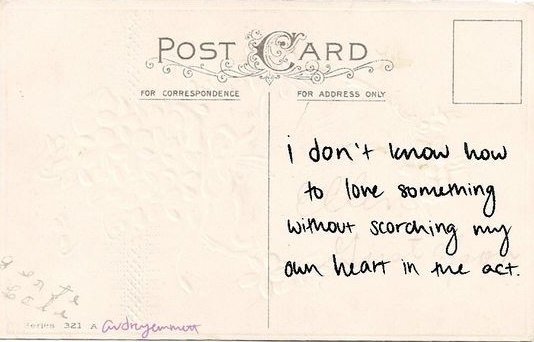 POST CARD
FOR CORRESPONDENCE
FOR ADDRESS ONLY
i don't know how
to love something
without scorching my
own heart in the act.
Series 321 A
audreyemmett